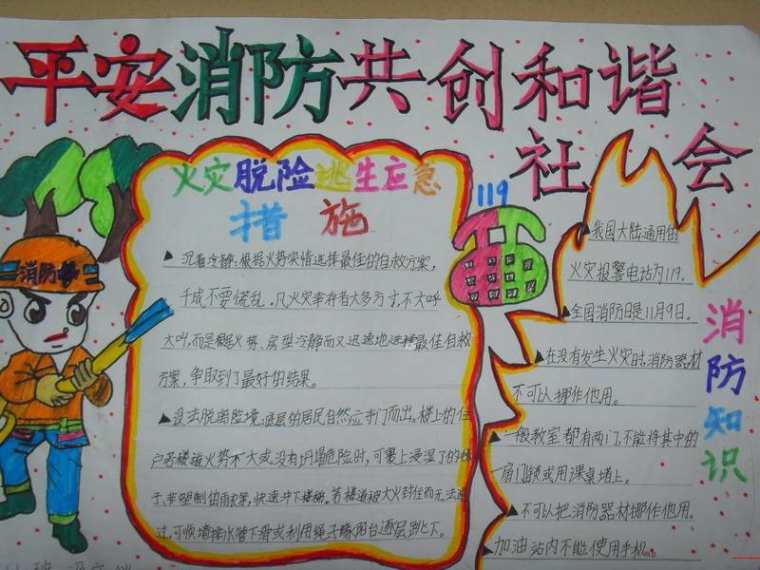 平安消防共创和谐
社会
火灾脱险逃生应急
措施
119
消防
▲沉着冷静:根据火势实情选择最佳的自救方案,
千成不要慌乱。
大叫,而是根据火势、房型冷静而又迅速地选择最佳自救
方案,争取到了最好的结果。
户若楼道火势不大或没有坍塌危险时,可裹上浸湿了的
快速冲下楼梯。若楼道被大火封住而无法通
过,可顺墙排水管下滑或利用绳子缘阳台逐层跳下。
▲我国大陆通用的
火灾报警电话为119。
▲全国消防日是11月9日。
▲在没有发生火灾时,消防器材
不可以挪作他用。
▲一般教室都有两门,不能将其中的
一扇门锁或用课桌堵上。
▲不可以把消防器材挪作他用。
▲加油站内不能使用手机。
消防知识